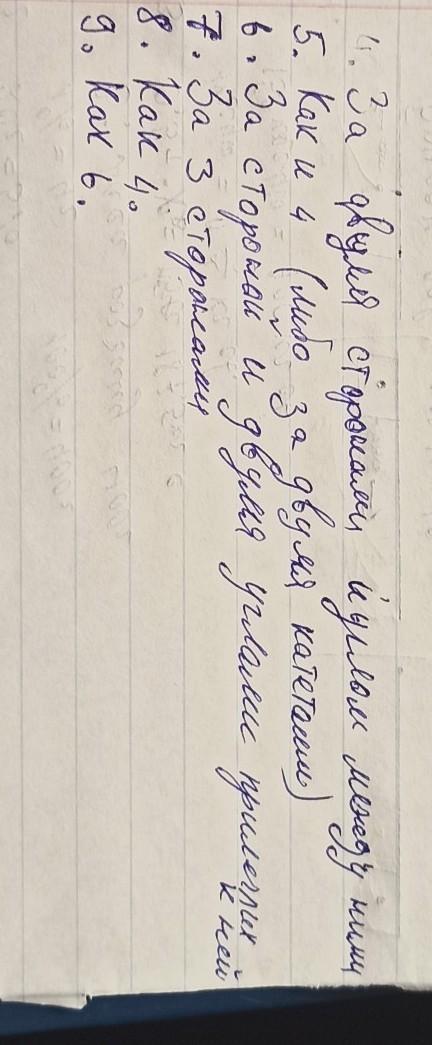 4. За двумя сторонами и углом между ними
5. Как и 4 (либо за двумя катетами)
6. За стороной и двумя углами прилеглих
к ней
7. За 3 сторонами
8. Как 4.
9. Как 6.